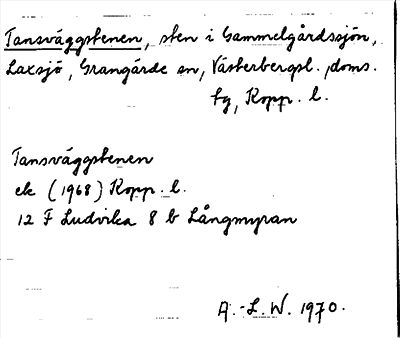 Tansväggstenen, sten i Gammelgårdssjön,
Laxsjö, Grangärde sn, Västerbergsl. doms.
tg, Kopp. l.
Tansväggstenen
ek (1968) Kopp. l.
12 F Ludvika 8 b Långmyran
A.-L. W. 1970.